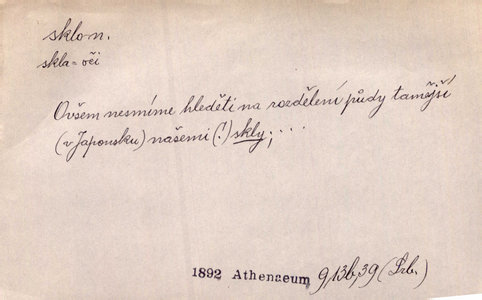 sklo n.
skla = oči
Ovšem nesmíme hleděti na rozdělení půdy tamější
(v Japonsku) našemi (!) skly; ....
1892 Athenaeum 9, 13b, 39 (Srb.)